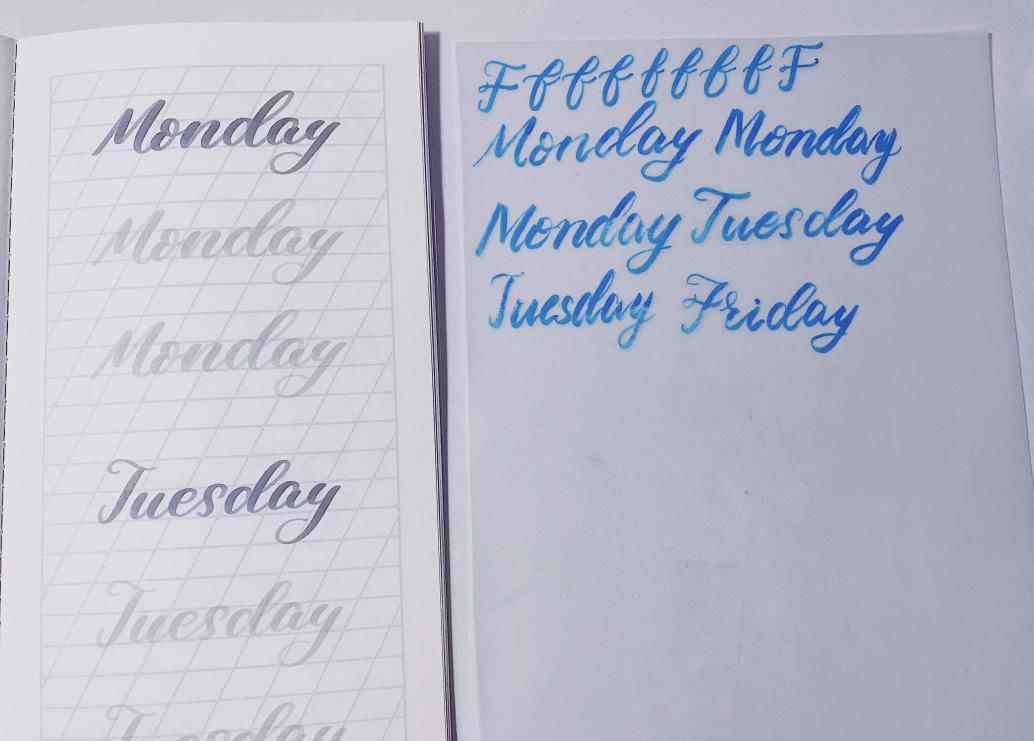 Monday
Monday
Monday
Tuesday
Tuesday
Tuesday
F f f f f f f f F
Monday Monday
Monday Tuesday
Tuesday Friday